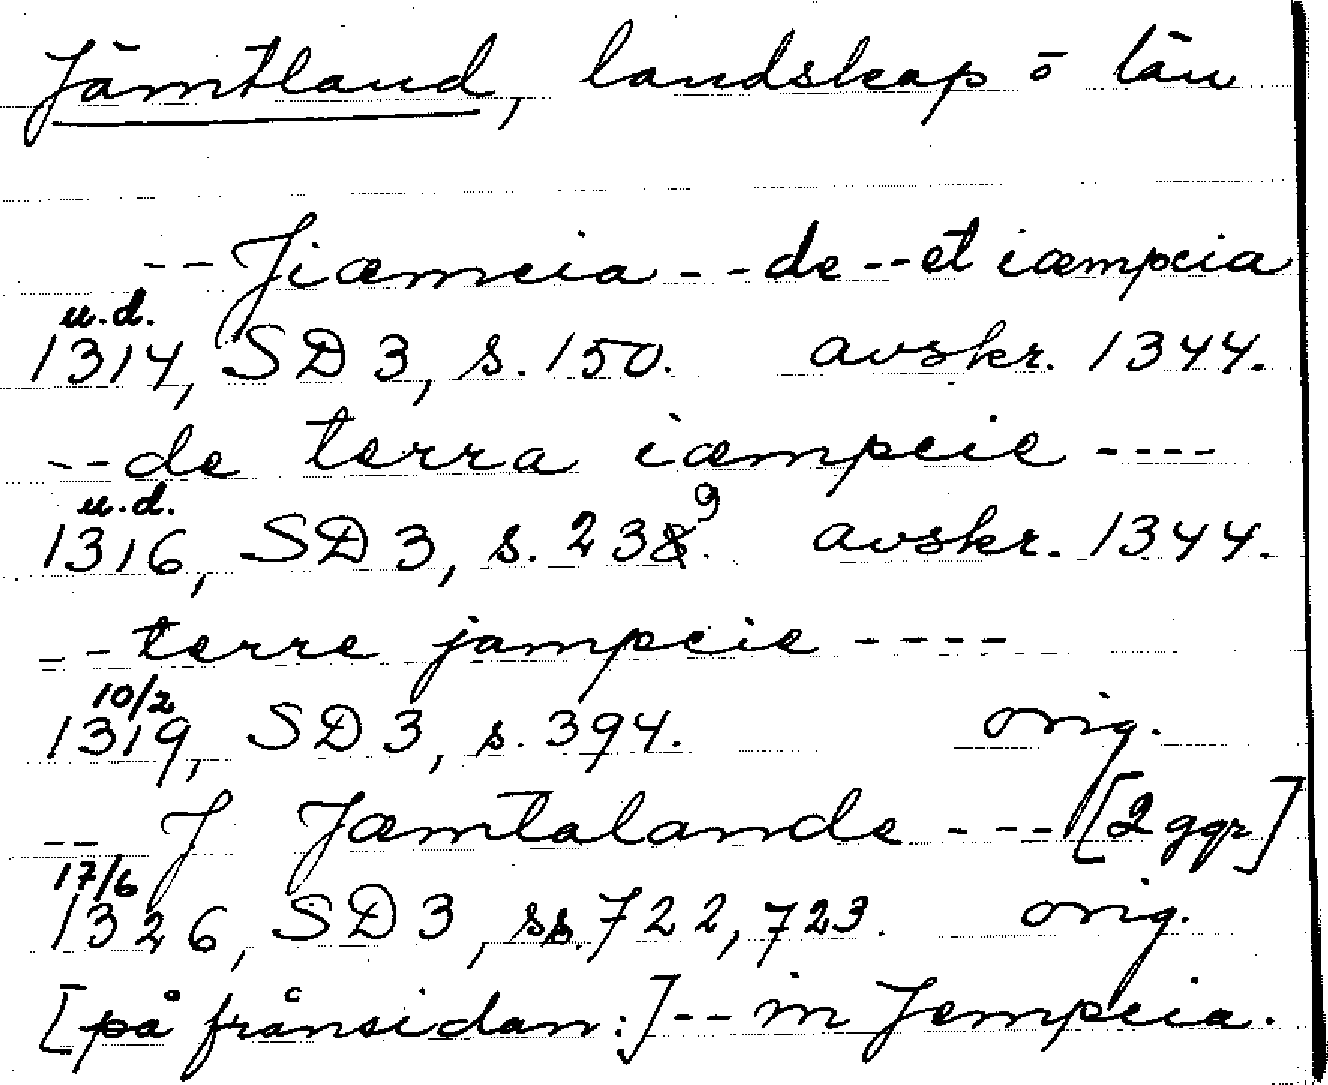 Jämtland, landskap o län
-- Jiæmcia -- de -- et iæmpcia
u.d.
1314, SD 3, s. 150. avskr. 1344.
-- de terra iæmpcie ----
u.d.
1316, SD 3, s. 239. avskr. 1344.
-- terre jampcie ----
10/2
1319, SD 3, s. 394. orig.
-- J Jæmtalande --- [2 ggr]
17/6
1326, SD 3, ss. 722, 723. orig.
[på frånsidan:] -- in Jempcia.